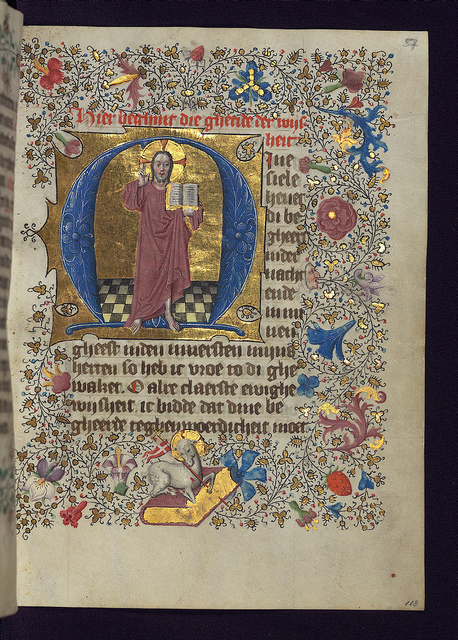 57
Hier beghint die ghetide der wijs
heit
M ijne
siele
heuet
di be
gheert
inder
nacht
ende
in my
nen
gheest inden innersten mijns
herten so heb ic vroe to di ghe
waket. O alre claerste ewighe
wijsheit ic bidde dat dine be
gheerde teghenwoerdicheit moet
113